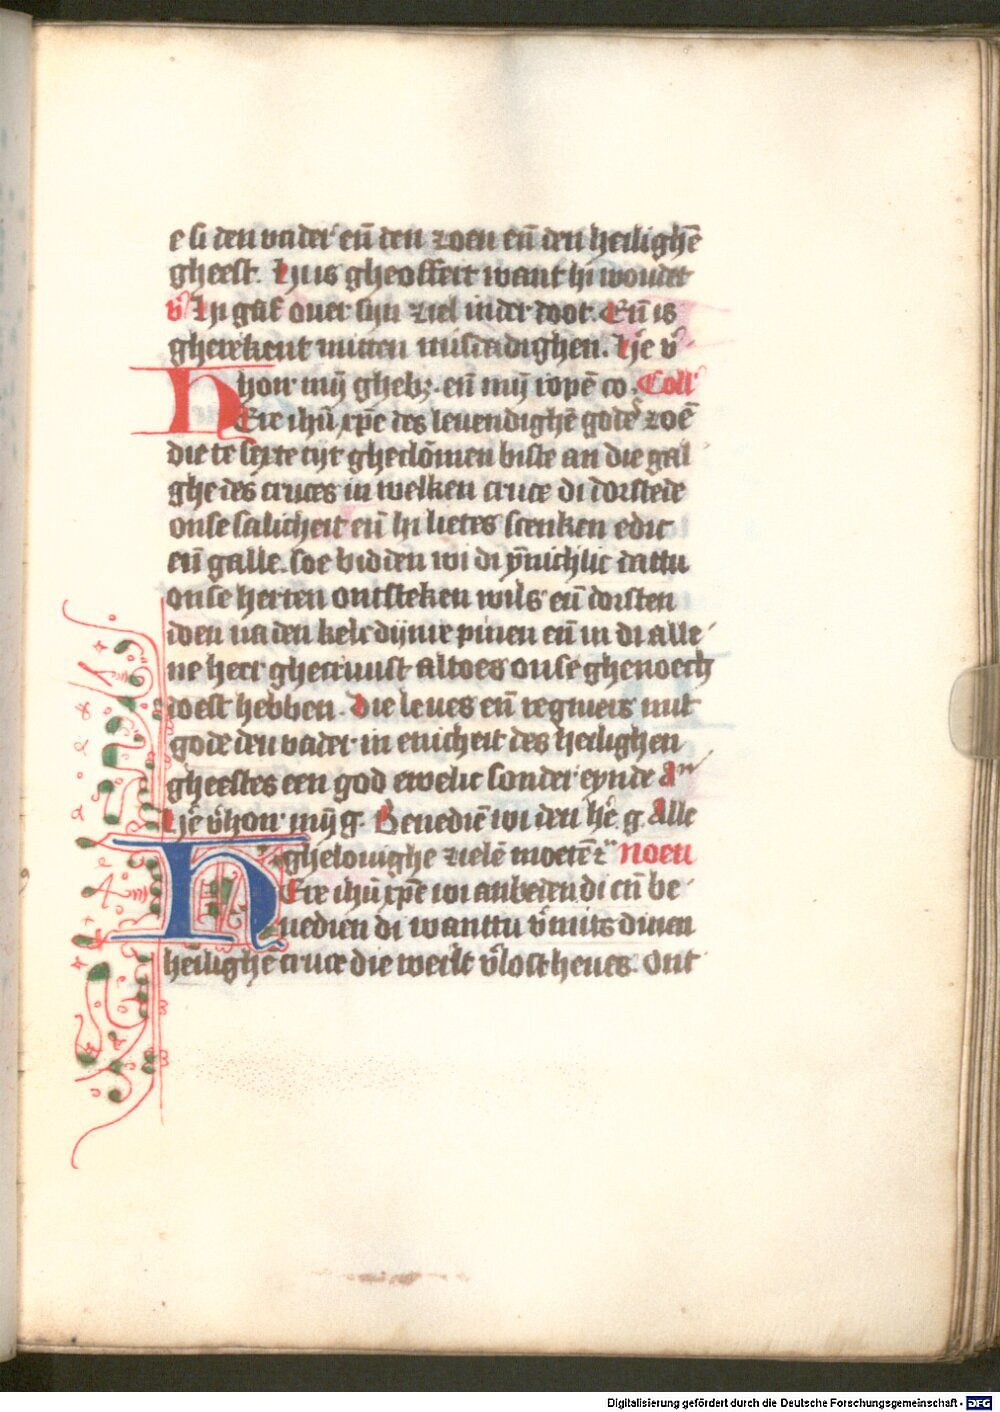 e si den vader eñ den zoen eñ den heilighē
gheest. Hi is gheoffert want hi woudet
v̾ Hi gaf ouer sijn ziel in der doot. Eñ is
gherekent mitten misdadighen. He v̾
hoir mij ghebꝫ. eñ mij ropē co. Coll'
HEre ihū xp̄e des leuendighē godes zoē
die te sexte tijt gheclōmen biste an die gal
ghe des cruces in welken cruce di dorstede
onse salicheit eñ hi lietes scenken edic
eñ galle. soe bidden wi di ȳnichlic dattu
onse herten ontsteken wils eñ dorsten
doen na den kelc dijnre pinen eñ in di alle
ne heer ghecruust altoes onse ghenoech
doest hebben. Die leues eñ regneirs mit
gode den vader in enicheit des heilighen
gheestes een god ewelic sonder eynde Am̄
He v̾hoir mij g. Benediē wi den he g. Alle
ghelouighe zielē moetē zc̄ Noen
HEre ihū xp̄e wi anbeden di eñ be
nedien di wanttu v̾mits dinen
heilighē cruce die werlt v̾lost heues. Ont
Digitalisierung gefördert durch die Deutsche Forschungsgemeinschaft - DFG